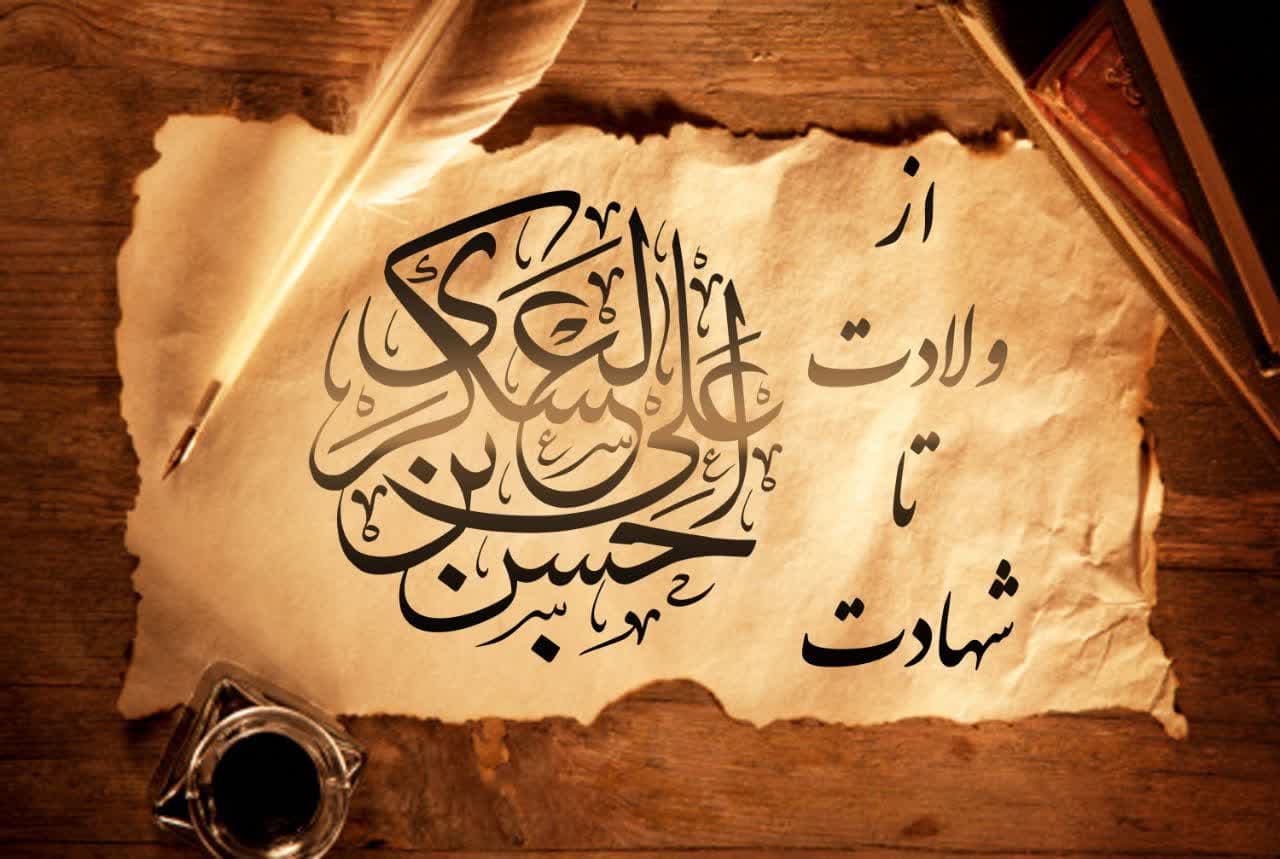 از
ولادت
تا
شهادت
حسن بن علی العسکری